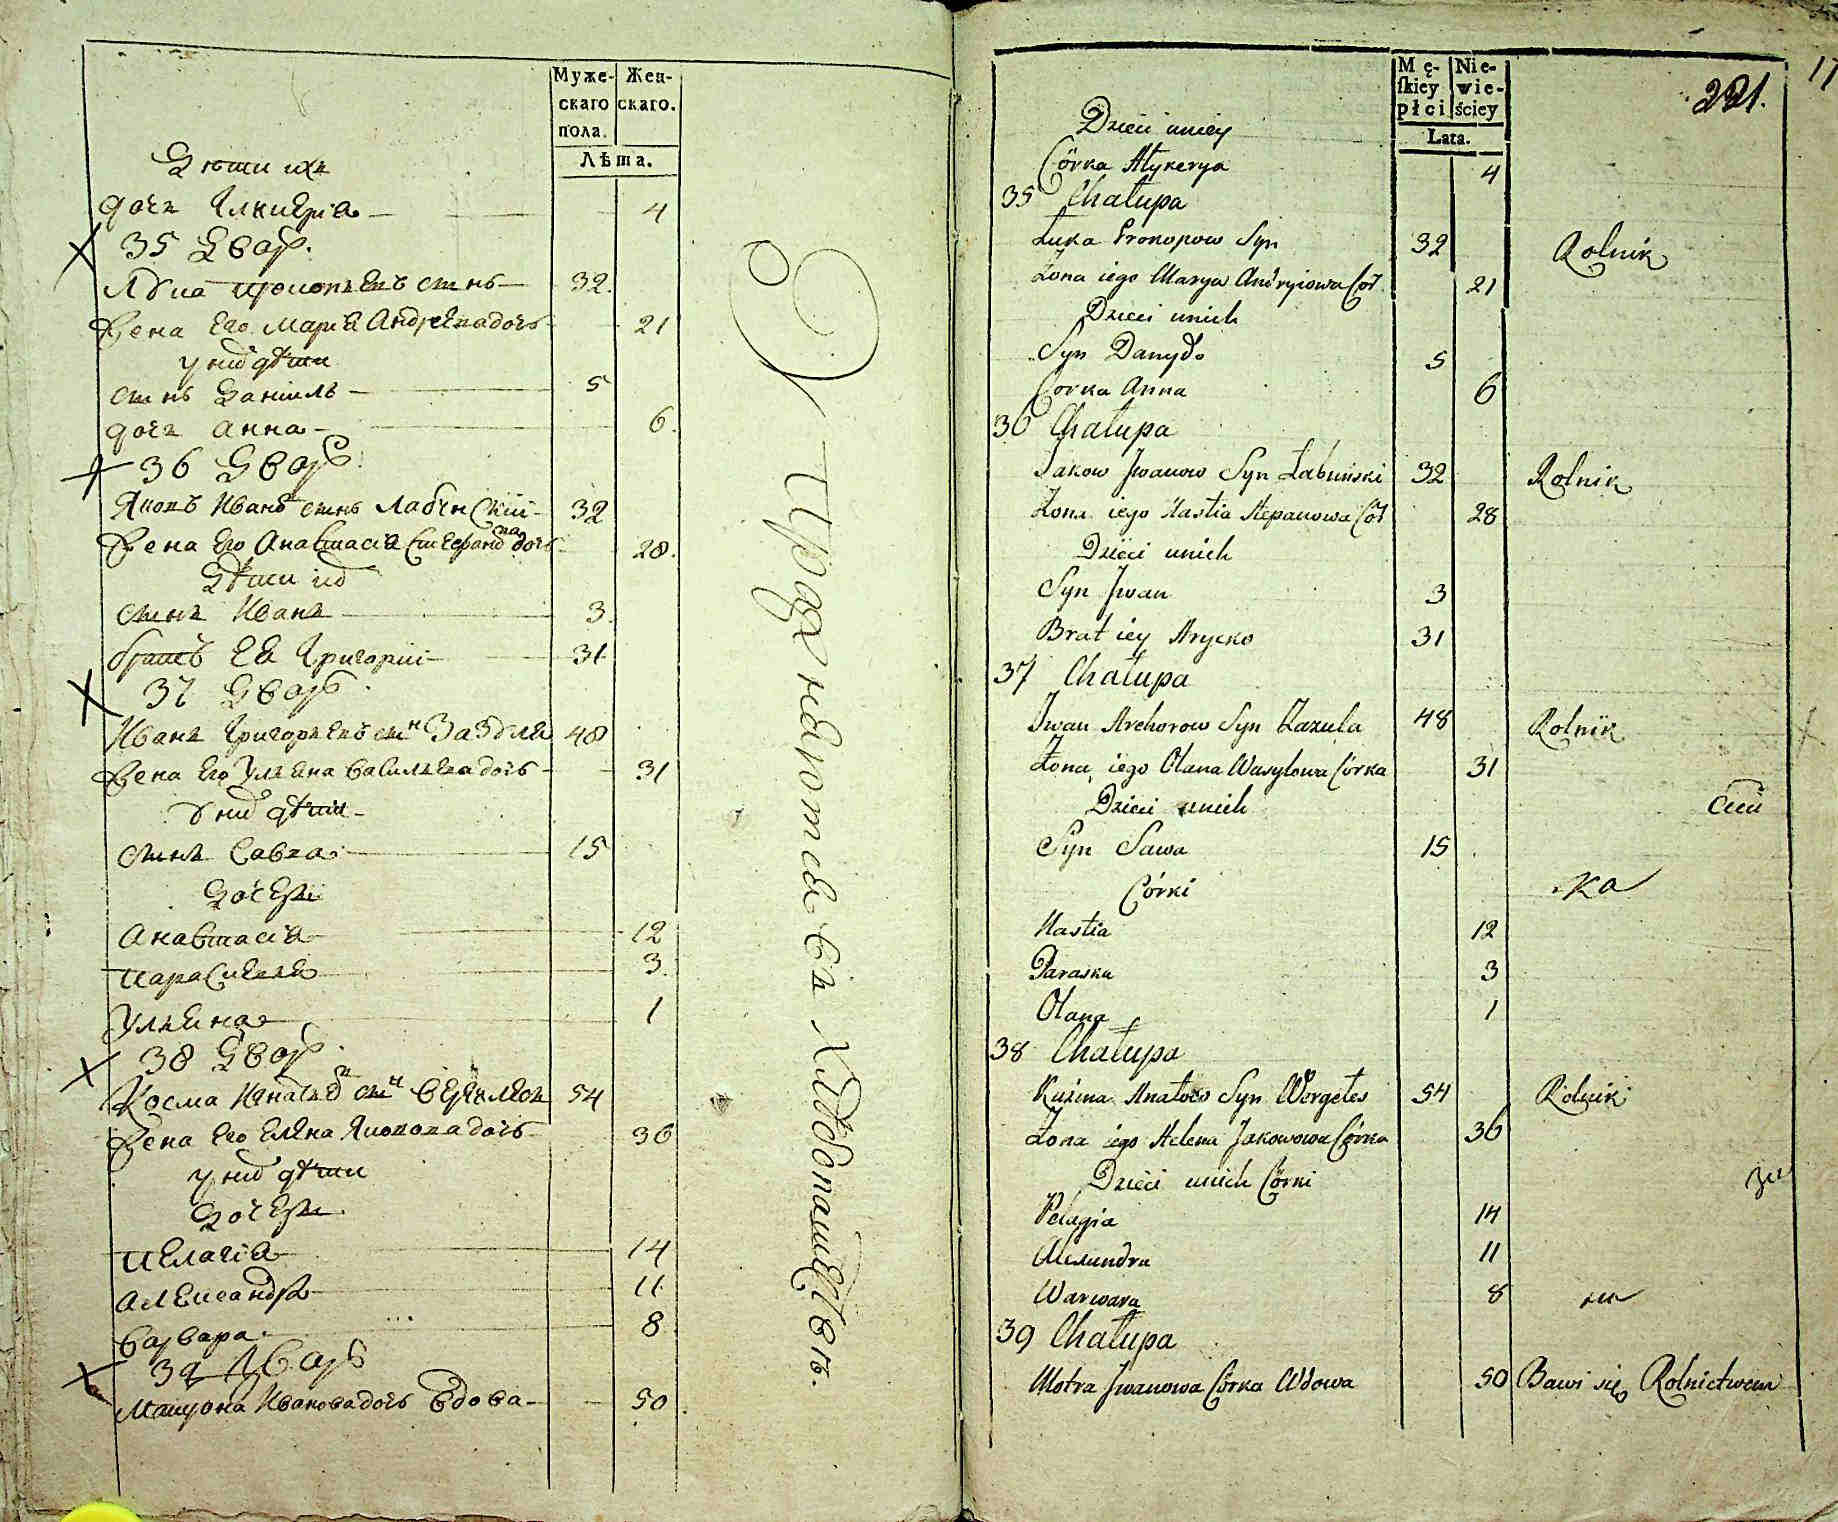 Муже-
скаго
пола.
Жен-
скаго.
Лѣта.
Дѣти ихъ
дочь Гликерія 4
35 Дворъ
Лука Прокопьевъ сынъ 32
Жена Его Марія Андреева дочь 21
у них дѣти
сынъ Даніилъ 5
дочь Анна 6.
36 Дворъ
Яковъ Иванов сынъ Лабунскій 32
Жена Его Анастасіа Стефановна дочь 28.
Дѣти их
сынъ Иванъ 3
братъ Ея Григорій 31
37 Дворъ
Иванъ Григорьевъ сын Зазуля 48
Жена Его Ульяна Васильева дочь 31
у них дѣти
сынъ Савва 15
Дочери
Анастасіа 12
Параскевія 3
Ульяна 1
38 Дворъ
Косма Игнатьев сын 54
Жена Его Елена Яковова дочь 36
у них дѣти
Дочери
Пелагія 14
Александра 11
Варвара 8
39 Дворъ
Матрона Иванова дочь вдова 50
Упражняются въ хлебопашествѣ.
Mę-
ſkiey
płci
Nie-
wie-
ściey
Lata.
221.
17
Dzieci uniey
Córka Hlykerya 4
35 Chałupa
Łuka Prokopow Syn 32 Rolnik
Żona iego Marya Andryiowa Cór 21
Dzieci unich
Syn Danyło 5
Corka Anna 6
36 Chałupa
Jakow Jwanow Syn Łabuński 32 Rolnik
Żona iego Nastia Stepanowa Cór 28
Dzieci unich
Syn Jwan 3
Brat iey Hrycko 31
37 Chałupa
Jwan Hrehorow Syn Zazula 48 Rolnik
Żona iego Olana Wasylowa Córka 31
Dzieci unich
Syn Sawa 15
Córki
Nastia 12
Paraska 3
Olana 1
38 Chałupa
Kuźma Hnatów Syn Wergeles 54 Rolnik
Żona iego Helena Jakowowa Córka 36
Dzieci unich Córki
Pelagia 14
Alexandra 11
Warwara 8
39 Chałupa
Motra Jwanowa Córka Wdowa 50 Bawi się Rolnictwem
ка